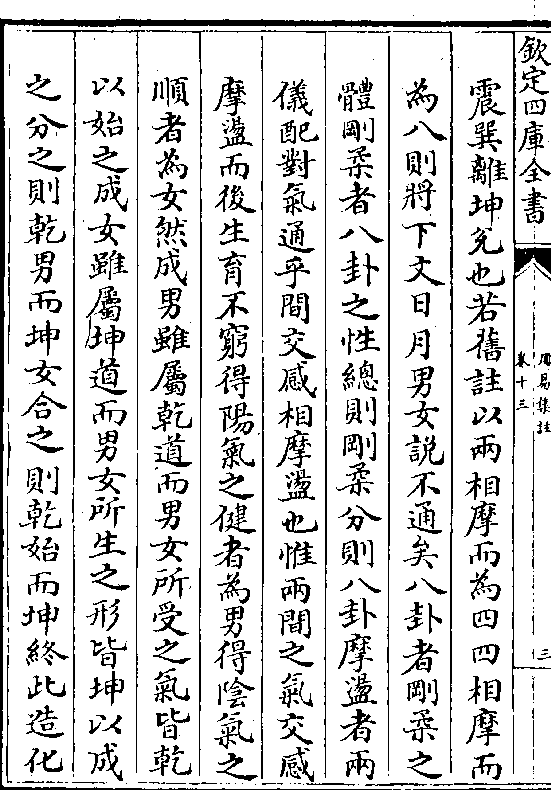 欽定四庫全書
周易集註
卷十三
三
震巽離坤兌也若舊註以兩相摩而為四四相摩而
為八則將下文日月男女說不通矣八卦者剛柔之
體剛柔者八卦之性總則剛柔分則八卦摩盪者兩
儀配對氣通乎間交感相摩盪也惟兩間之氣交感
摩盪而後生育不窮得陽氣之健者為男得陰氣之
順者為女然成男雖屬乾道而男女所受之氣皆乾
以始之成女雖屬坤道而男女所生之形皆坤以成
之分之則乾男而坤女合之則乾始而坤終此造化